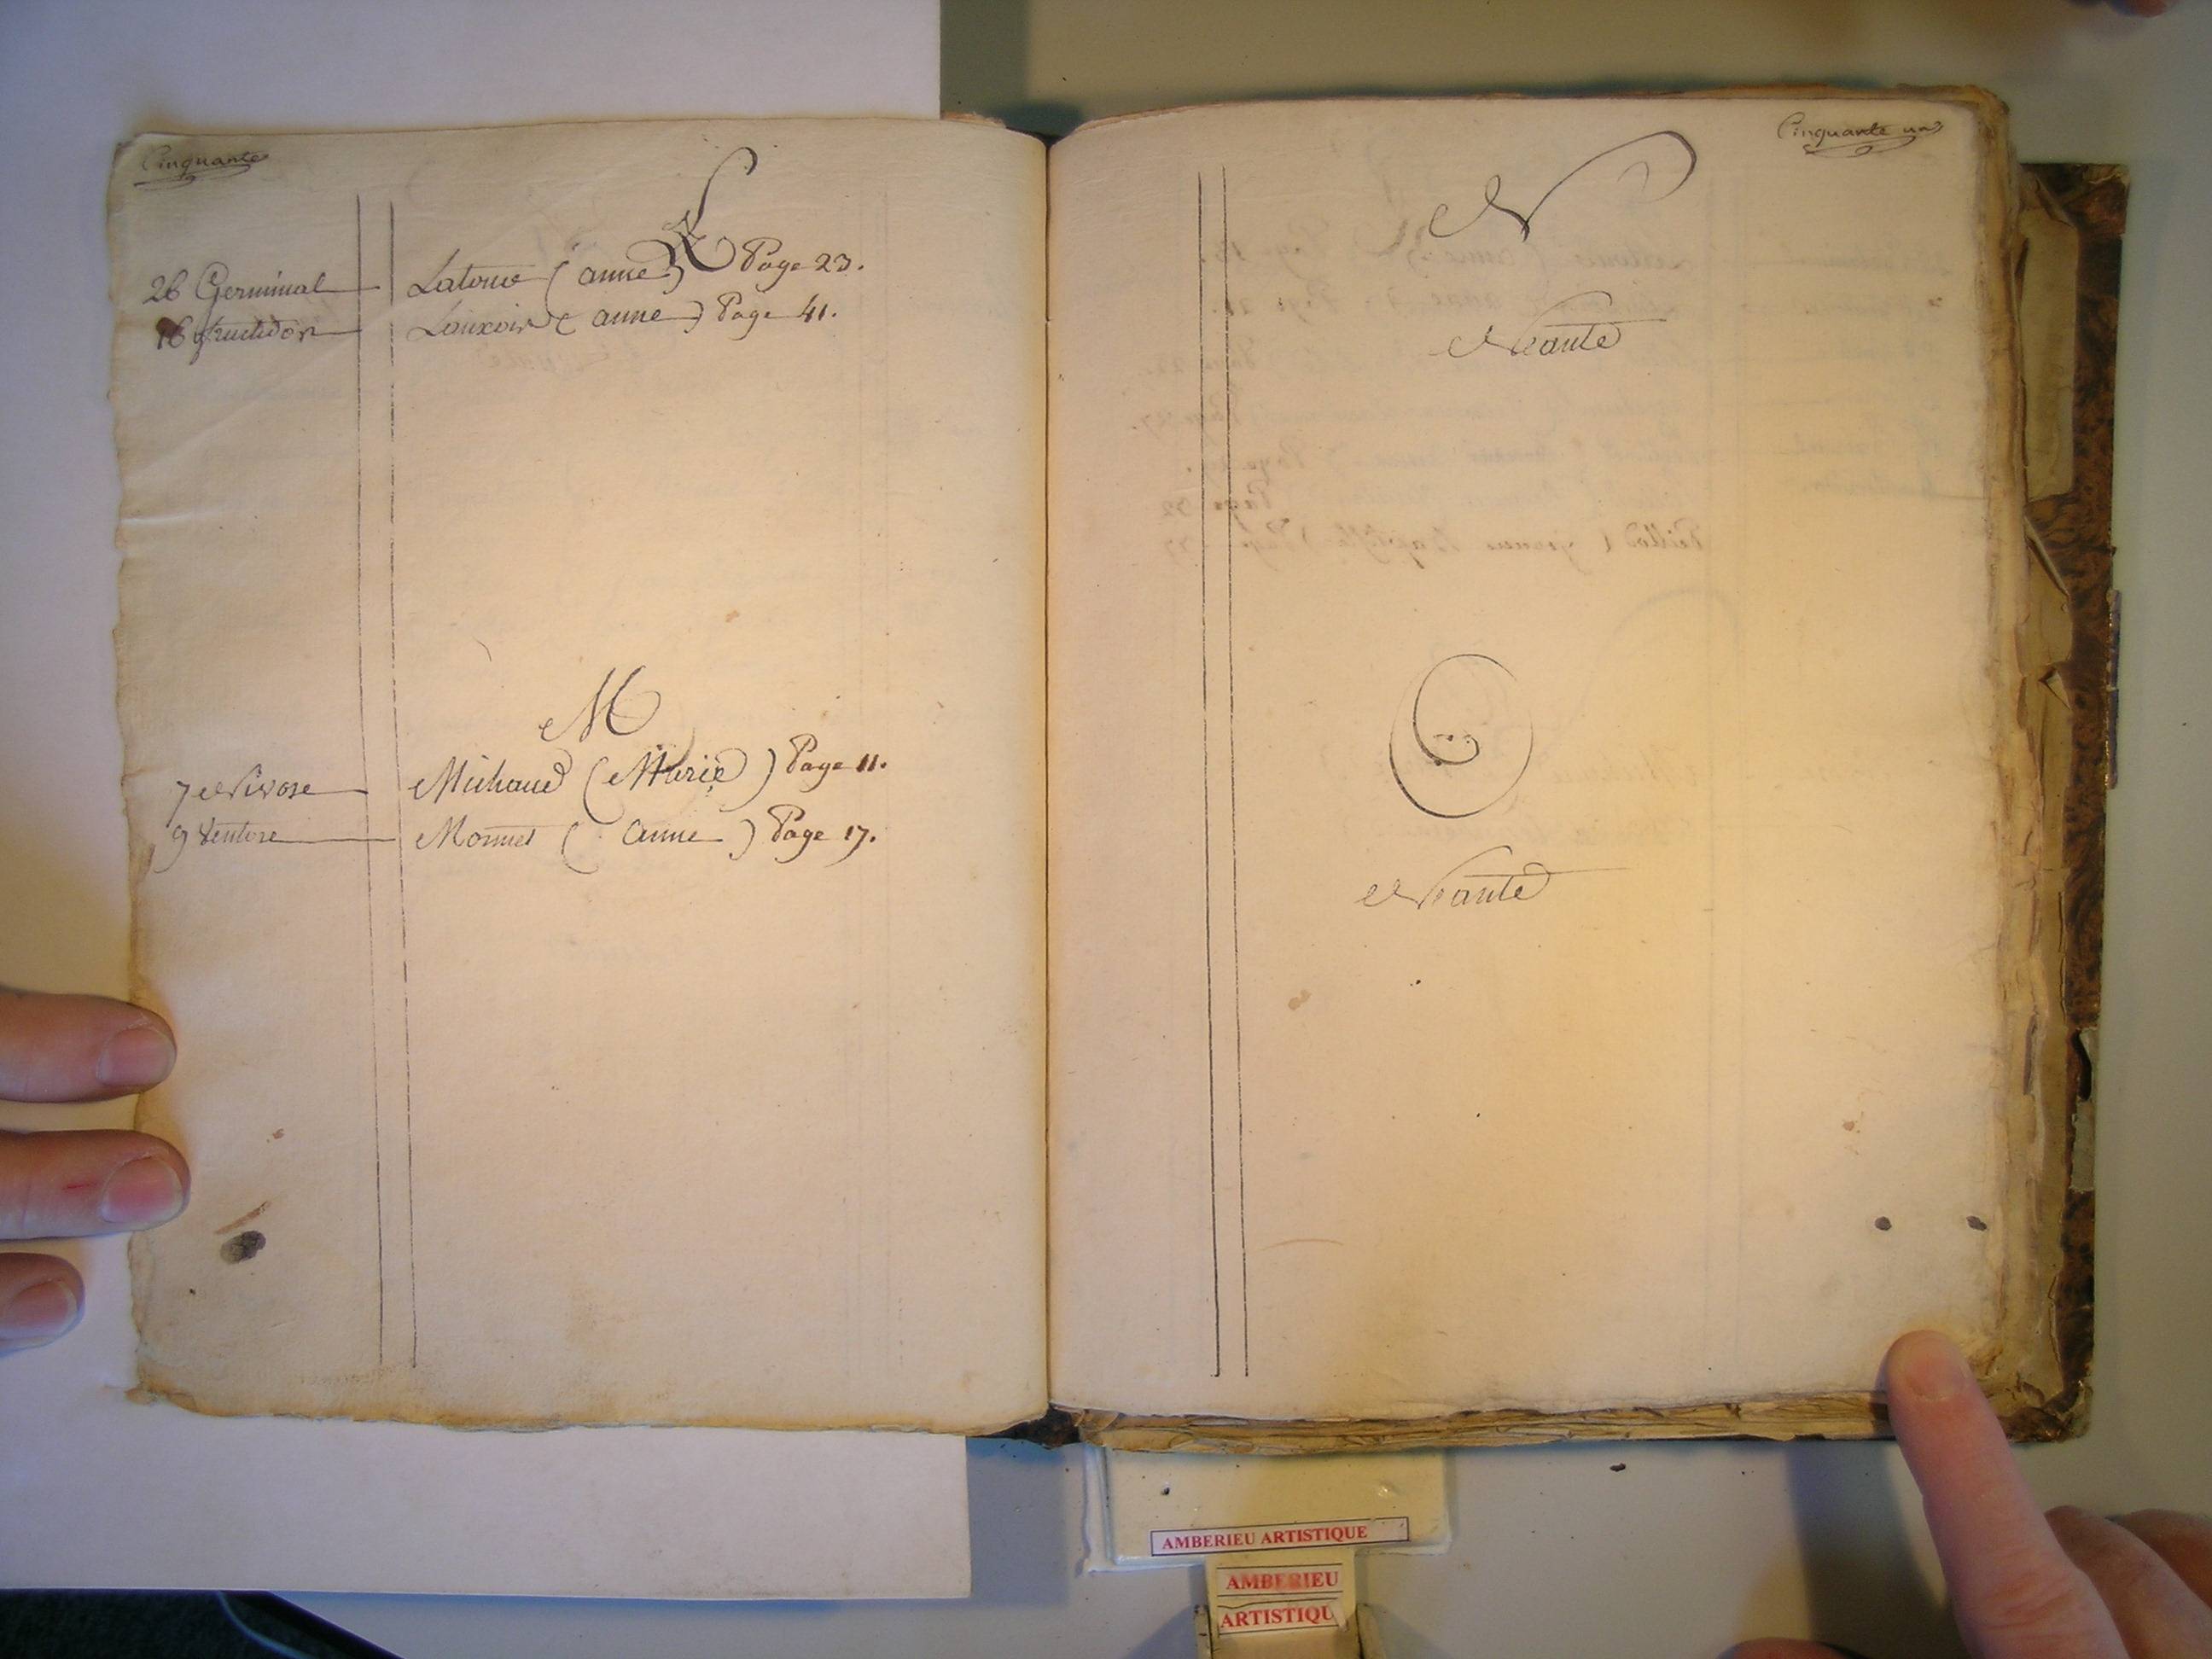 Cinquante
L
26 Germinal Latour (anne) Page 23.
16 fructidor (anne) Page 41.
M
7 Nivose Michaud (Marie) Page 11.
9 Ventose Monnet (Anne) Page 17.
Cinquante un
N
Néante
O
Néante
AMBERIEU ARTISTIQUE
AMBERIEU
ARTISTIQU